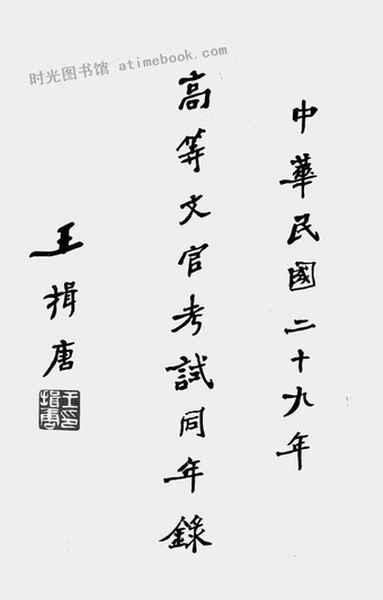 时光图书馆 atimebook.com
中華民國二十九年
高等文官考試同年錄
王揖唐
王揖唐印